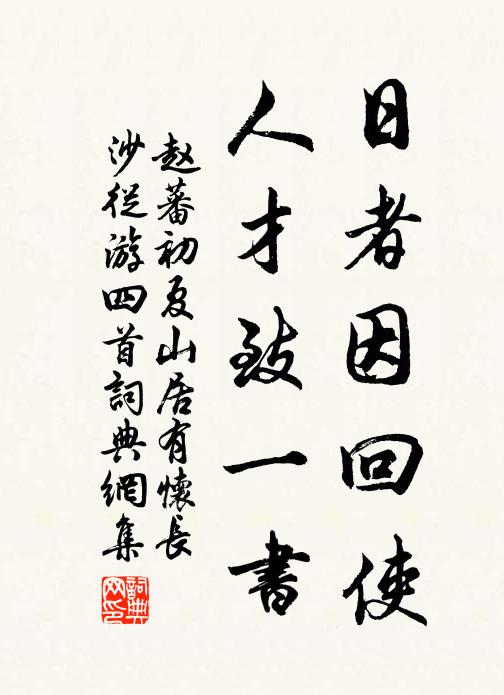 日者因回使
人才致一書
赵蕃初夏山居有懷長
沙從游四首詞典網集
詞典
网印